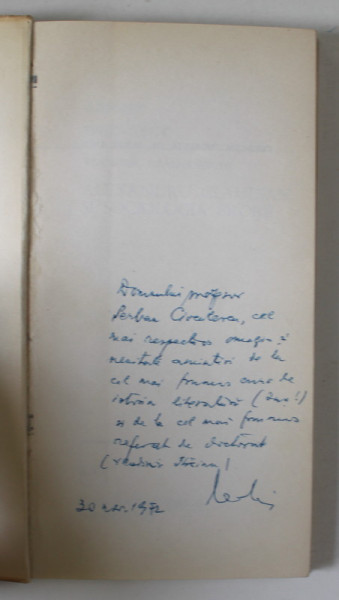 Domnului profesor
Șerban Cioculescu, cel
mai respectuos omagiu și
amintiri de la
cel mai frumos curs de
istorie literară
și de la cel mai frumos
referat de doctorat
(Vladimir
30 nov. 1972